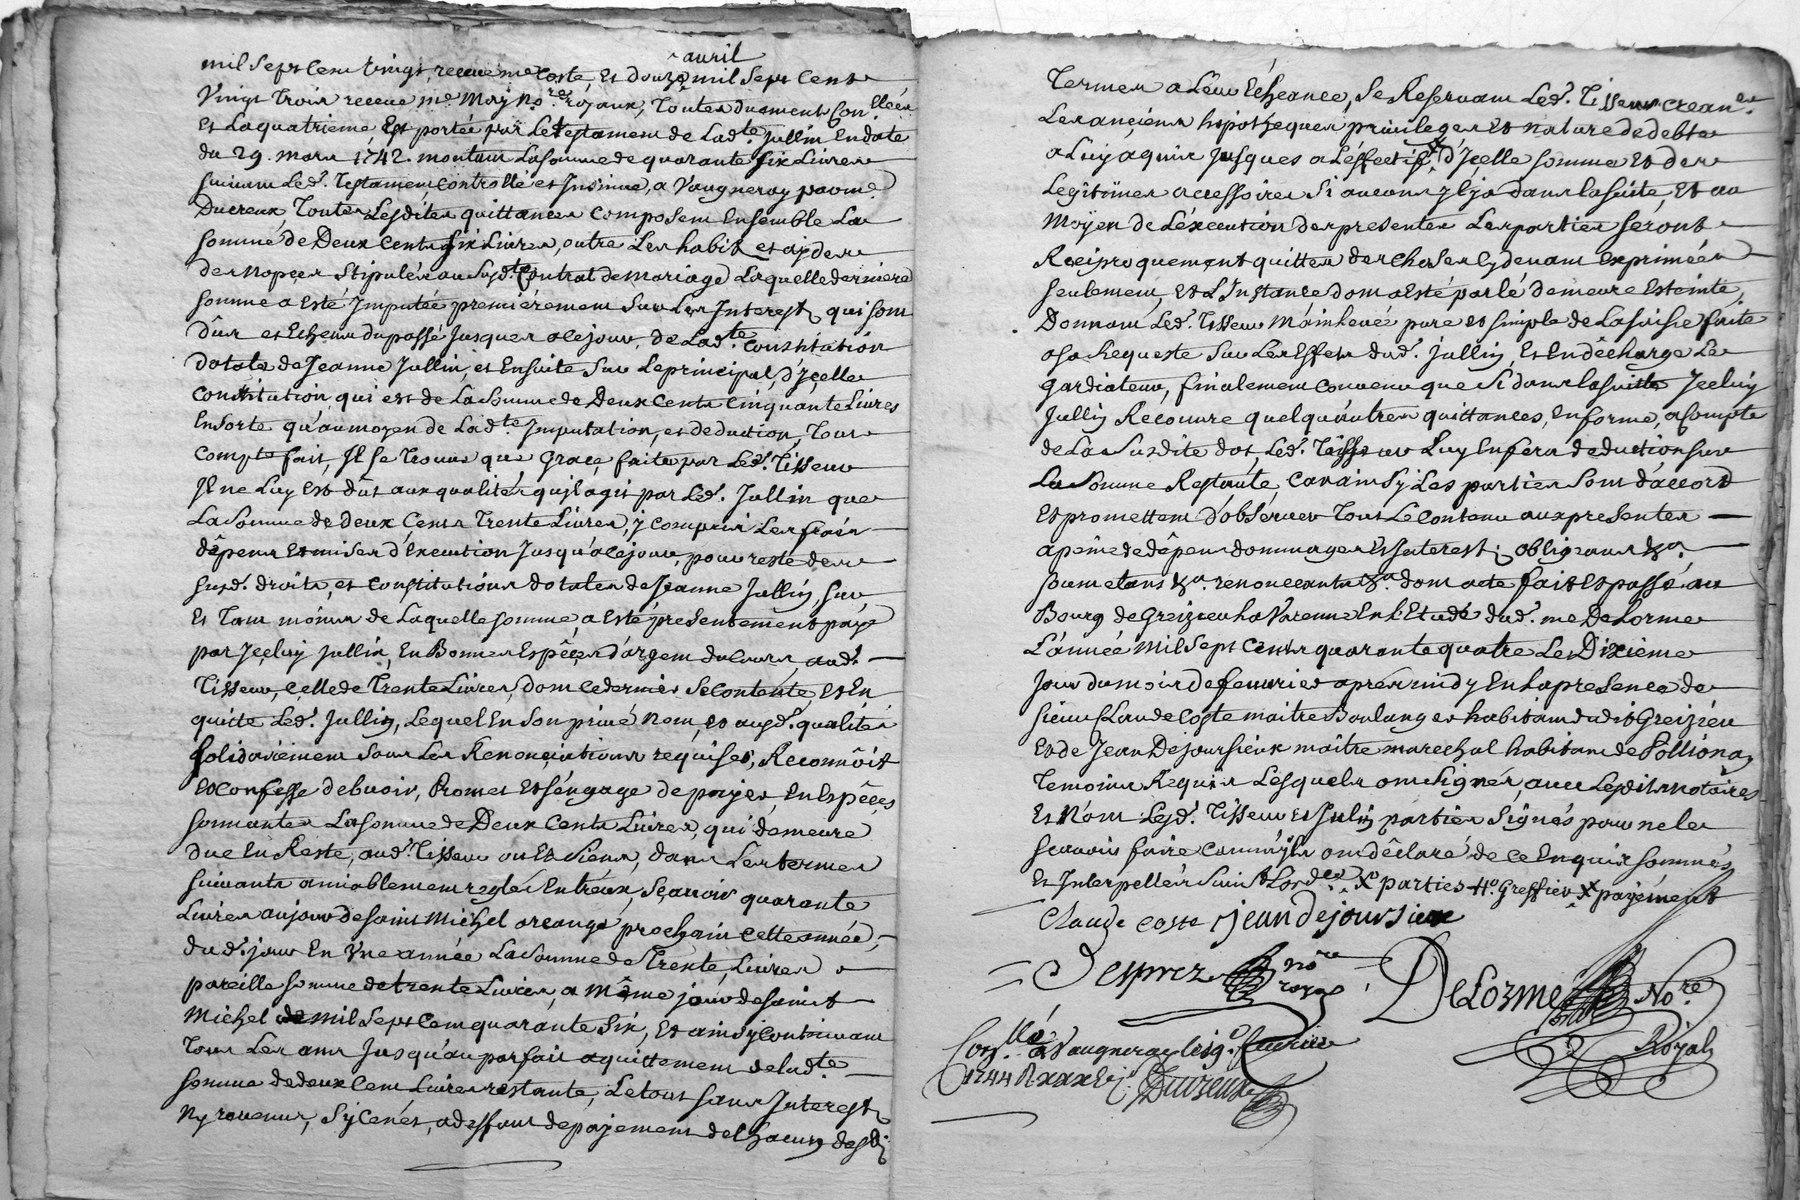 avril
mil sept cent vingt, receue me Coste, et douze mil sept cent
Vingt trois receue me May no.re royaux, Toutes duement Con.llées
Et La quatrieme Est portée par Le testament de Lad.te Jullin En date
du 29. mars 1742. montant La somme de quarante six Livres
suivant Led. Testament controllé et Insinué, a Vaugneray par me.
Ducreux Toutes Lesdites quittances composent Ensemble La
somme de Deux cents six Livres, outre Les habits et aydes
de nopces stipulés au susd.t Contrat de mariage Laquelle derniere
somme a Esté Imputée premiérement sur Les Interests qui sont
dûs et Echeus du passé Jusques a ce jour, de Lad.te constitution
dotale de Jeanne Jullin, et Ensuite sur Le principal d'Içelle
constitution qui est de La somme de Deux cents cinquante Livres
Ensorte qu'au moyen de Lad.te Imputation, et deduction, Tout
compte fait, Il se trouve que Grace faite par Led. Tisseur
Il ne Luy Est dût aux qualités qu'il agit par Led. Jullin que
La somme de deux Cents Trente Livres, y compris Les frais
dêpens et mises d'Execution Jusqu'a ce jour, pour reste des
susd. droits, et constitutions dotales de Jeanne Jullin, sur
Et Tant moins de Laquelle somme, a Esté présentement payé
par Jçeluy Jullin, En Bonnes Espêçes d'argent du cours, aud.
Tisseur, Celle de Trente Livres, dont ce dernier se contente, et En
quitte Led. Jullin, Lequel En son privé Nom, et ausd. qualités
solidairement sous Les Renonçiations requises, Reconnôit
et Confesse debvoir, Promet et s'éngage de payer, En Espêçes
sonnantes La somme de Deux Cents Livres, qui demeure
due En Reste, aud. Tisseur ou Es Siens, dans Les termes
suivants amiablement reglés Entréux, Sçavoir quarante
Livres au jour de saint Michel archange prochain cette année,
dud. jour En Une année La somme de Trente Livres
pareille somme de trente Livres, a Même jour de saint
Michel mil sept cent quarante six, Et ainsy continuant
Tous Les ans Jusqu'au parfait aquittement de lad.te
somme de deux Cent Livres restante, Le tout sans Interests
Ny revenus, Sy ce nést, a deffaut de payement de Chacun desd.
Termes a Leur Echeance, Se Reservant Led. Tisseur crean.er
Les anciens hipotheques privileges et nature de debte
a Luy aquis Jusques a L'éffectif X d'Jçelle somme et des
Legitimes accessoires si aucuns y Eja dans la suite, Et au
Moyen de L'éxecution des presentes Les parties séront
Reciproquement quittes des choses cy devant Exprimées
seulement, Et L'Instance dont a Esté parlé demeure Esteinte,
Donnant Led. Tisseur mainlevé pure et simple de La saisie faite
a sa Requeste sur Les Effets dud. Jullin, Et En dêcharge Le
gardiateur, finalement convenu que si dans la suite Jceluy
Jullin Recouvre quelqu'autres quittances, En forme, a compte
de La susdite dot, Led. Tisseur Luy En fera deduction sur
La somme Restante, Car ainsy Les parties sont d'accord
Et promettent d'observer Tout Le contenu aux presentes
a peine de dêpens dommages Et Interests, obligeans &a.
soumetans &a. renonceants &a. dont acte fait Et passé au
Bourg de Greizieu La Varenne En L'Etude dud. me DeLorme
L'année Mil sept Cents quarante quatre Le Dixieme
Jour du mois de fevrier apres midy En La presence de
sieur Claude Coste maitre Boulanger habitant dudit Greizieu
Et de Jean Dejoursieux maître marechal habitant de Pollionay
Temoins Requis Lesquels ont signer, avec Lesdits notaires
Et Nom Lesd. Tisseur Et Julin parties signés pour ne le
sçavoir faire comm'ils ont dêclaré de ce Enquis sommés
Et Interpellés suiv.t L'or.dce X parties Greffier X payément
Claude coste jean dejoursieux
Desprez no.re royal DeLorme No.re
Royal
Con.llé a Vaugneray le 19. fevrier
1744 R Ducreux